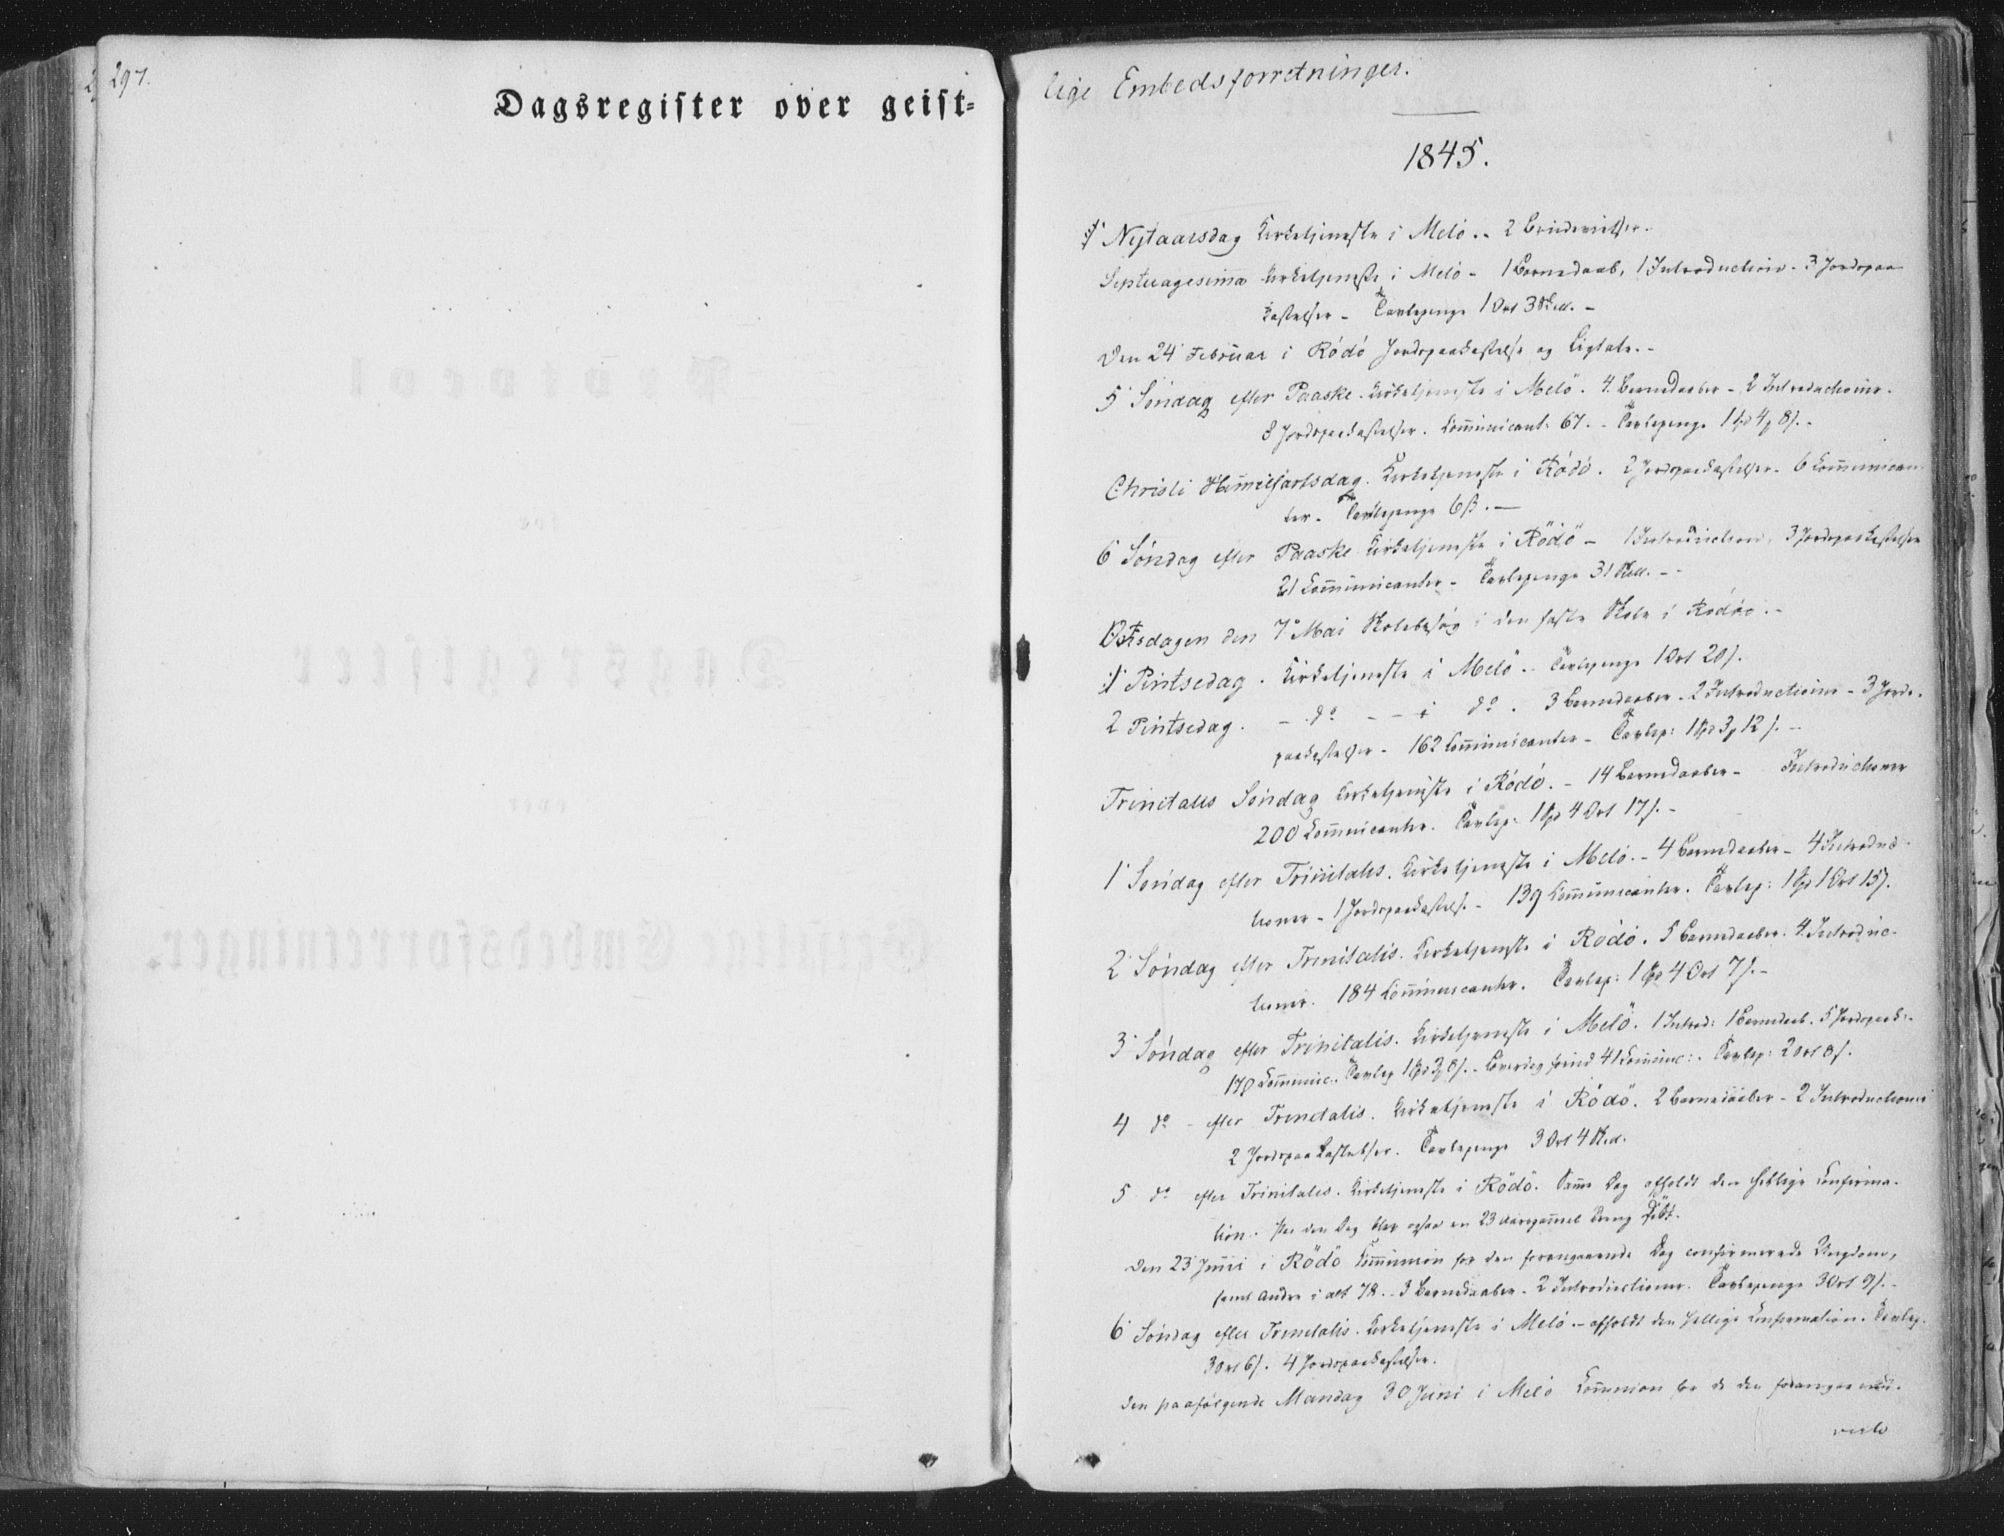 297.
Dagsregister over geist-
lige Embedsforretninger.
1845.
Nytaarsdag Kirketjeneste i Melö. - 2
Septuagesima Kirketjeneste i Melö - 1 Barnedaab, 1 Introduction. 3 Jordspaa
kastelser - Tavlepenge 1 Ort 3 Skill. -
Den 24 Februar i Rödö Jordspaakastelse og Ligtale. -
5 Söndag efter Paaske. Kirketjeneste i Melö. 4 Barnedaaber - 2 Introductioner.
8 Jordspaakastelser. Communicant: 67. - Tavlepenge 1
Christi Himmelfartsdag. Kirketjeneste i Rödö. 2 Jordspaakastelser. 6 Communican
ter. Tavlepenge 6 ß. —
6 Söndag efter Paaske Kirketjeneste i Rödö - 1 Introduction, 3 Jordspaakastelser
21 Communicanter - Tavlepenge 31 Skill. - -
den 7 Mai Skolebesög i den faste Skole i Rödöe. -
1 Pintsedag. Kirketjeneste i Melö. - Tavlepenge 1 Ort 20 s.
2 Pintsedag. - do - - i do. 3 Barnedaaber - 2 Introductioner - 3 Jords-
paakastelser - 162 Communicanter - Tavlep: 1 Spd 3 12 s. -
Trinitatis Söndag Kirketjeneste i Rödö. - 14 Barnedaaber - Introductioner
200 Communicanter. Tavlep: 1 Spd 4 Ort 17 s. -
1 Söndag efter Trinitatis. Kirketjeneste i Melö. - 4 Barnedaaber - 4 Introduc-
tioner - 1 Jordspaakastelse - 139 Communicanter. Tavlep: 1 Spd 1 Ort 15 s.
2 Söndag efter Trinitatis. Kirketjeneste i Rödö. 5 Barnedaaber. 4 Introduc-
tioner. 184 Communicanter. Tavlep: 1 Spd 4 Ort 7 s. -
3 Söndag efter Trinitatis. Kirketjeneste i Melö. 1 Introd: 1 Barnedaab. 5 Jordspaak:
Communic. Tavlep 1 Spd 41 Communic: Tavlep: 2 Ort 8 s.
4 do - efter Trinitatis. Kirketjeneste i Rödö. 2 Barnedaaber - 2 Introductioner
2 Jordspaakastelser. Tavlepenge 3 Ort 4 Skill.
5 do efter Trinitatis. Kirketjeneste i Rödö. Samme Dag afholdt den hellige Confirma-
tion. den Dag blev ogsaa en 23 Aarsgammel Dreng döbt.
Den 23 Juni i Rödö Communion for den foregaaende Dag confirmerede Ungdom,
samt andre i alt 78. - 3 Barnedaaber. 2 Introductioner. Tavlepenge 3 Ort 9 s. -
6 Söndag efter Trinitatis. Kirketjeneste i Melö - afholdt den hellige Confirmation. Tavlep.
3 Ort 6 s. 4 Jordspaakastelser.
den paafölgende Mandag 30 Juni i Melö Communion for de den